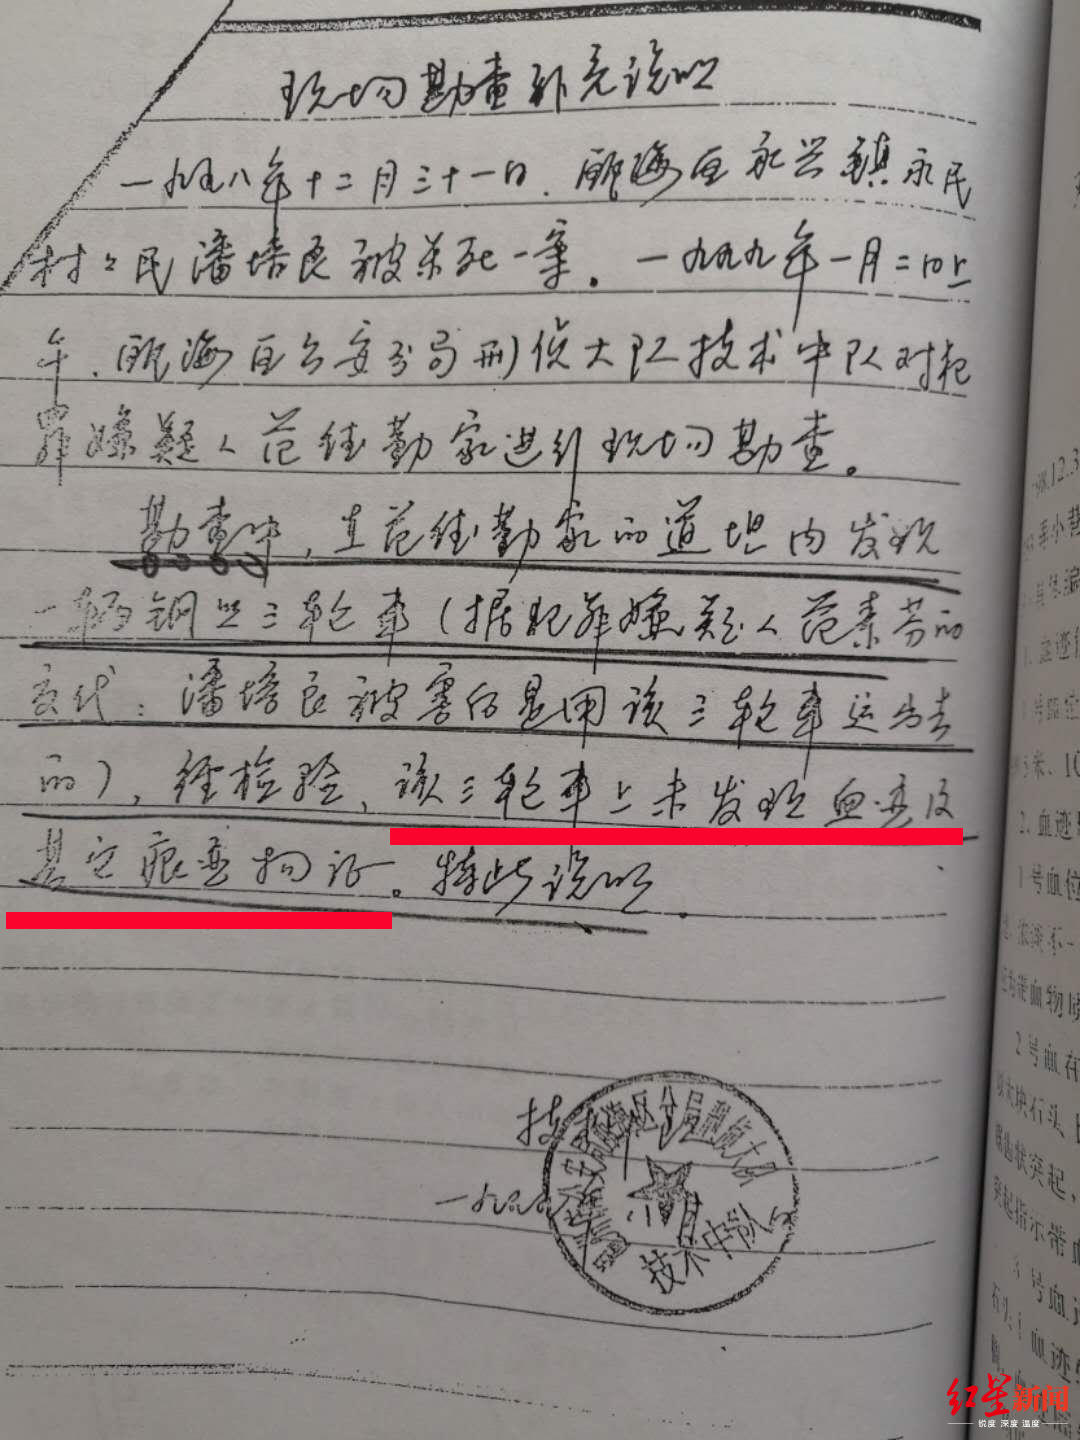 现场勘查补充说明
一九九八年十二月三十一日、瓯海区永兴镇永民
村村民潘培良被杀死一案。一九九九年一月二日上
午、瓯海区公安分局刑侦大队技术中队对犯
罪嫌疑人范佳勤家进行现场勘查。
勘查中，在范佳勤家的道坦内发现
一辆钢丝三轮车（据犯罪嫌疑人范素芬的
交代：潘培良被害后是用该三轮车运出去
的），经检验，该三轮车上未发现血迹及
其它痕迹物证。特此说明.
技术中队
一九九九 月
公安局瓯海区分局刑侦大队
技术中队
98.12.3
米、10
2、血迹
1号血位
带血物质
2号血在
大块石头、
状突起，
突起指示带血
号血
石头
血迹
红星新闻
锐度 深度 温度